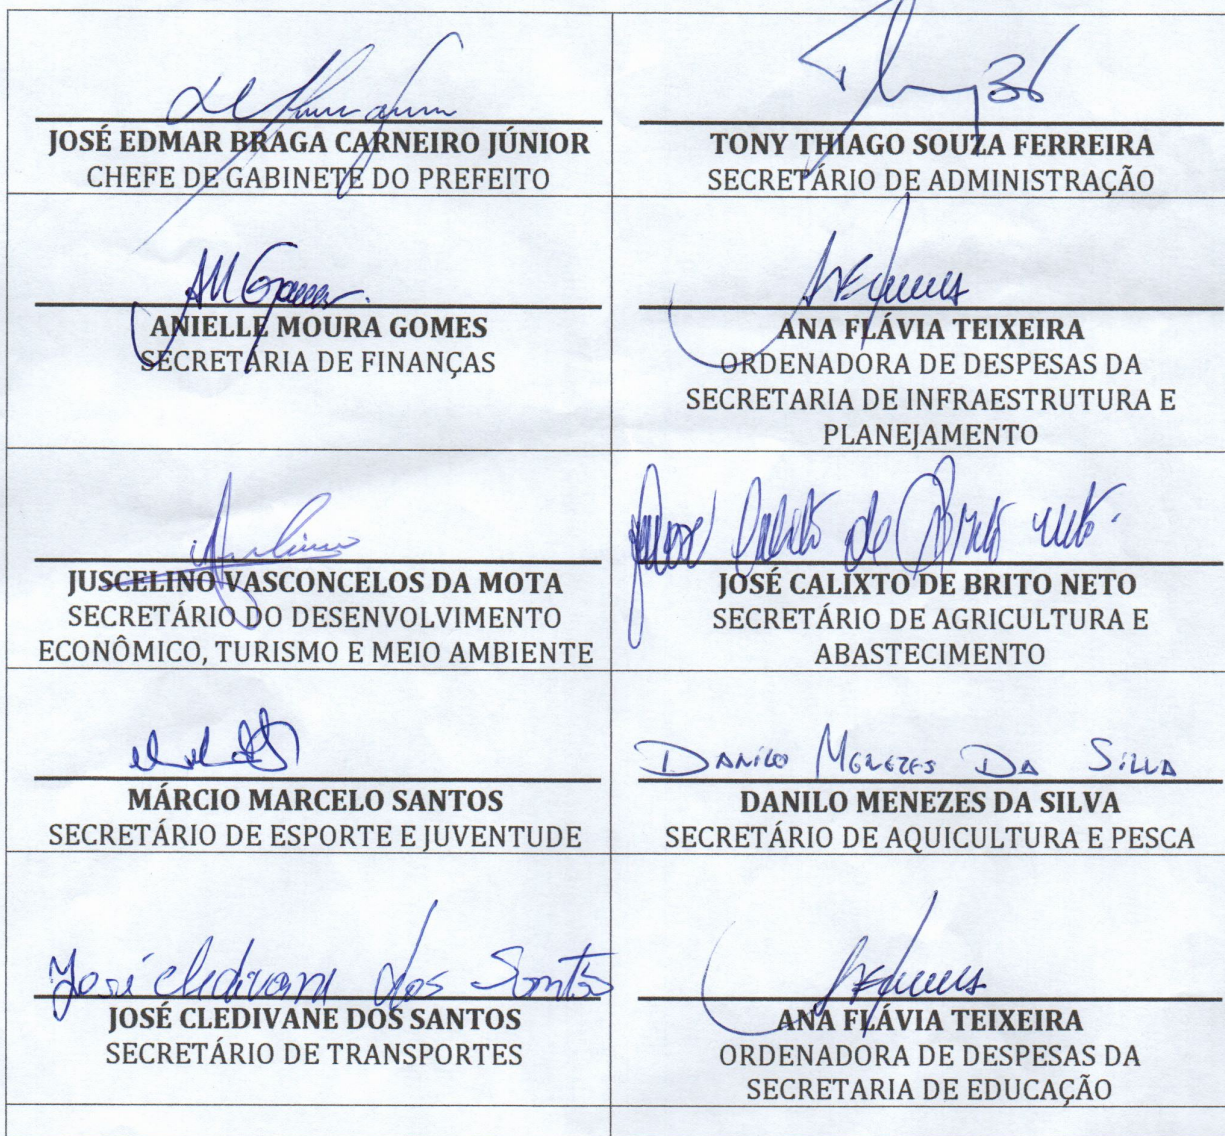 JOSÉ EDMAR BRAGA CARNEIRO JÚNIOR
CHEFE DE GABINETE DO PREFEITO
TONY THIAGO SOUZA FERREIRA
SECRETÁRIO DE ADMINISTRAÇÃO
ANIELLE MOURA GOMES
SECRETÁRIA DE FINANÇAS
ANA FLÁVIA TEIXEIRA
ORDENADORA DE DESPESAS DA
SECRETARIA DE INFRAESTRUTURA E
PLANEJAMENTO
JUSCELINO VASCONCELOS DA MOTA
SECRETÁRIO DO DESENVOLVIMENTO
ECONÔMICO, TURISMO E MEIO AMBIENTE
José Calixto de Brito Neto
JOSÉ CALIXTO DE BRITO NETO
SECRETÁRIO DE AGRICULTURA E
ABASTECIMENTO
MÁRCIO MARCELO SANTOS
SECRETÁRIO DE ESPORTE E JUVENTUDE
DANILO MENEZES DA SILVA
DANILO MENEZES DA SILVA
SECRETÁRIO DE AQUICULTURA E PESCA
José Cledivane dos Santos
JOSÉ CLEDIVANE DOS SANTOS
SECRETÁRIO DE TRANSPORTES
ANA FLÁVIA TEIXEIRA
ORDENADORA DE DESPESAS DA
SECRETARIA DE EDUCAÇÃO